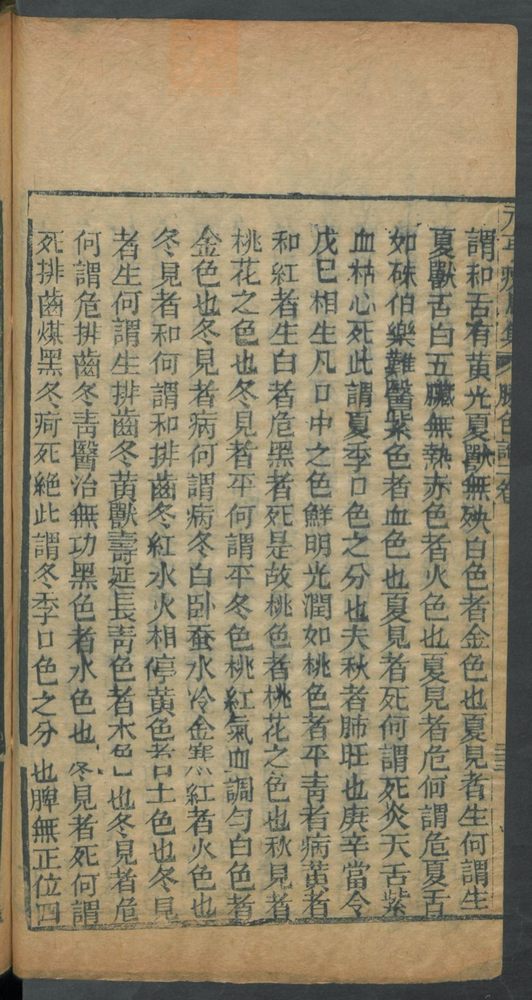 謂和舌有黃光夏獸無殃白色者金色也夏見者生何謂生
夏獸舌白五臟無熱赤色者火色也夏見者危何謂危夏舌
如硃伯樂難醫紫色者血色也夏見者死何謂死炎天舌紫
血枯心死此謂夏季口色之分也夫秋者肺旺也庚辛當令
戊巳相生凡口中之色鮮明光潤如桃色者平青者病黃者
和紅者生白者危黑者死是故桃色者桃花之色也秋見者
桃花之色也冬見者平何謂平冬色桃紅氣血調勻白色者
金色也冬見者病何謂病冬白卧蚕水冷金寒紅者火色也
冬見者和何謂和排齒冬紅水火相停黃色者土色也冬見
者生何謂生排齒冬黃獸壽延長青色者木色也冬見者危
何謂危排齒冬青醫治無功黑色者水色也冬見者死何謂
死排齒煤黑冬痾死絕此謂冬季口色之分也脾無正位四